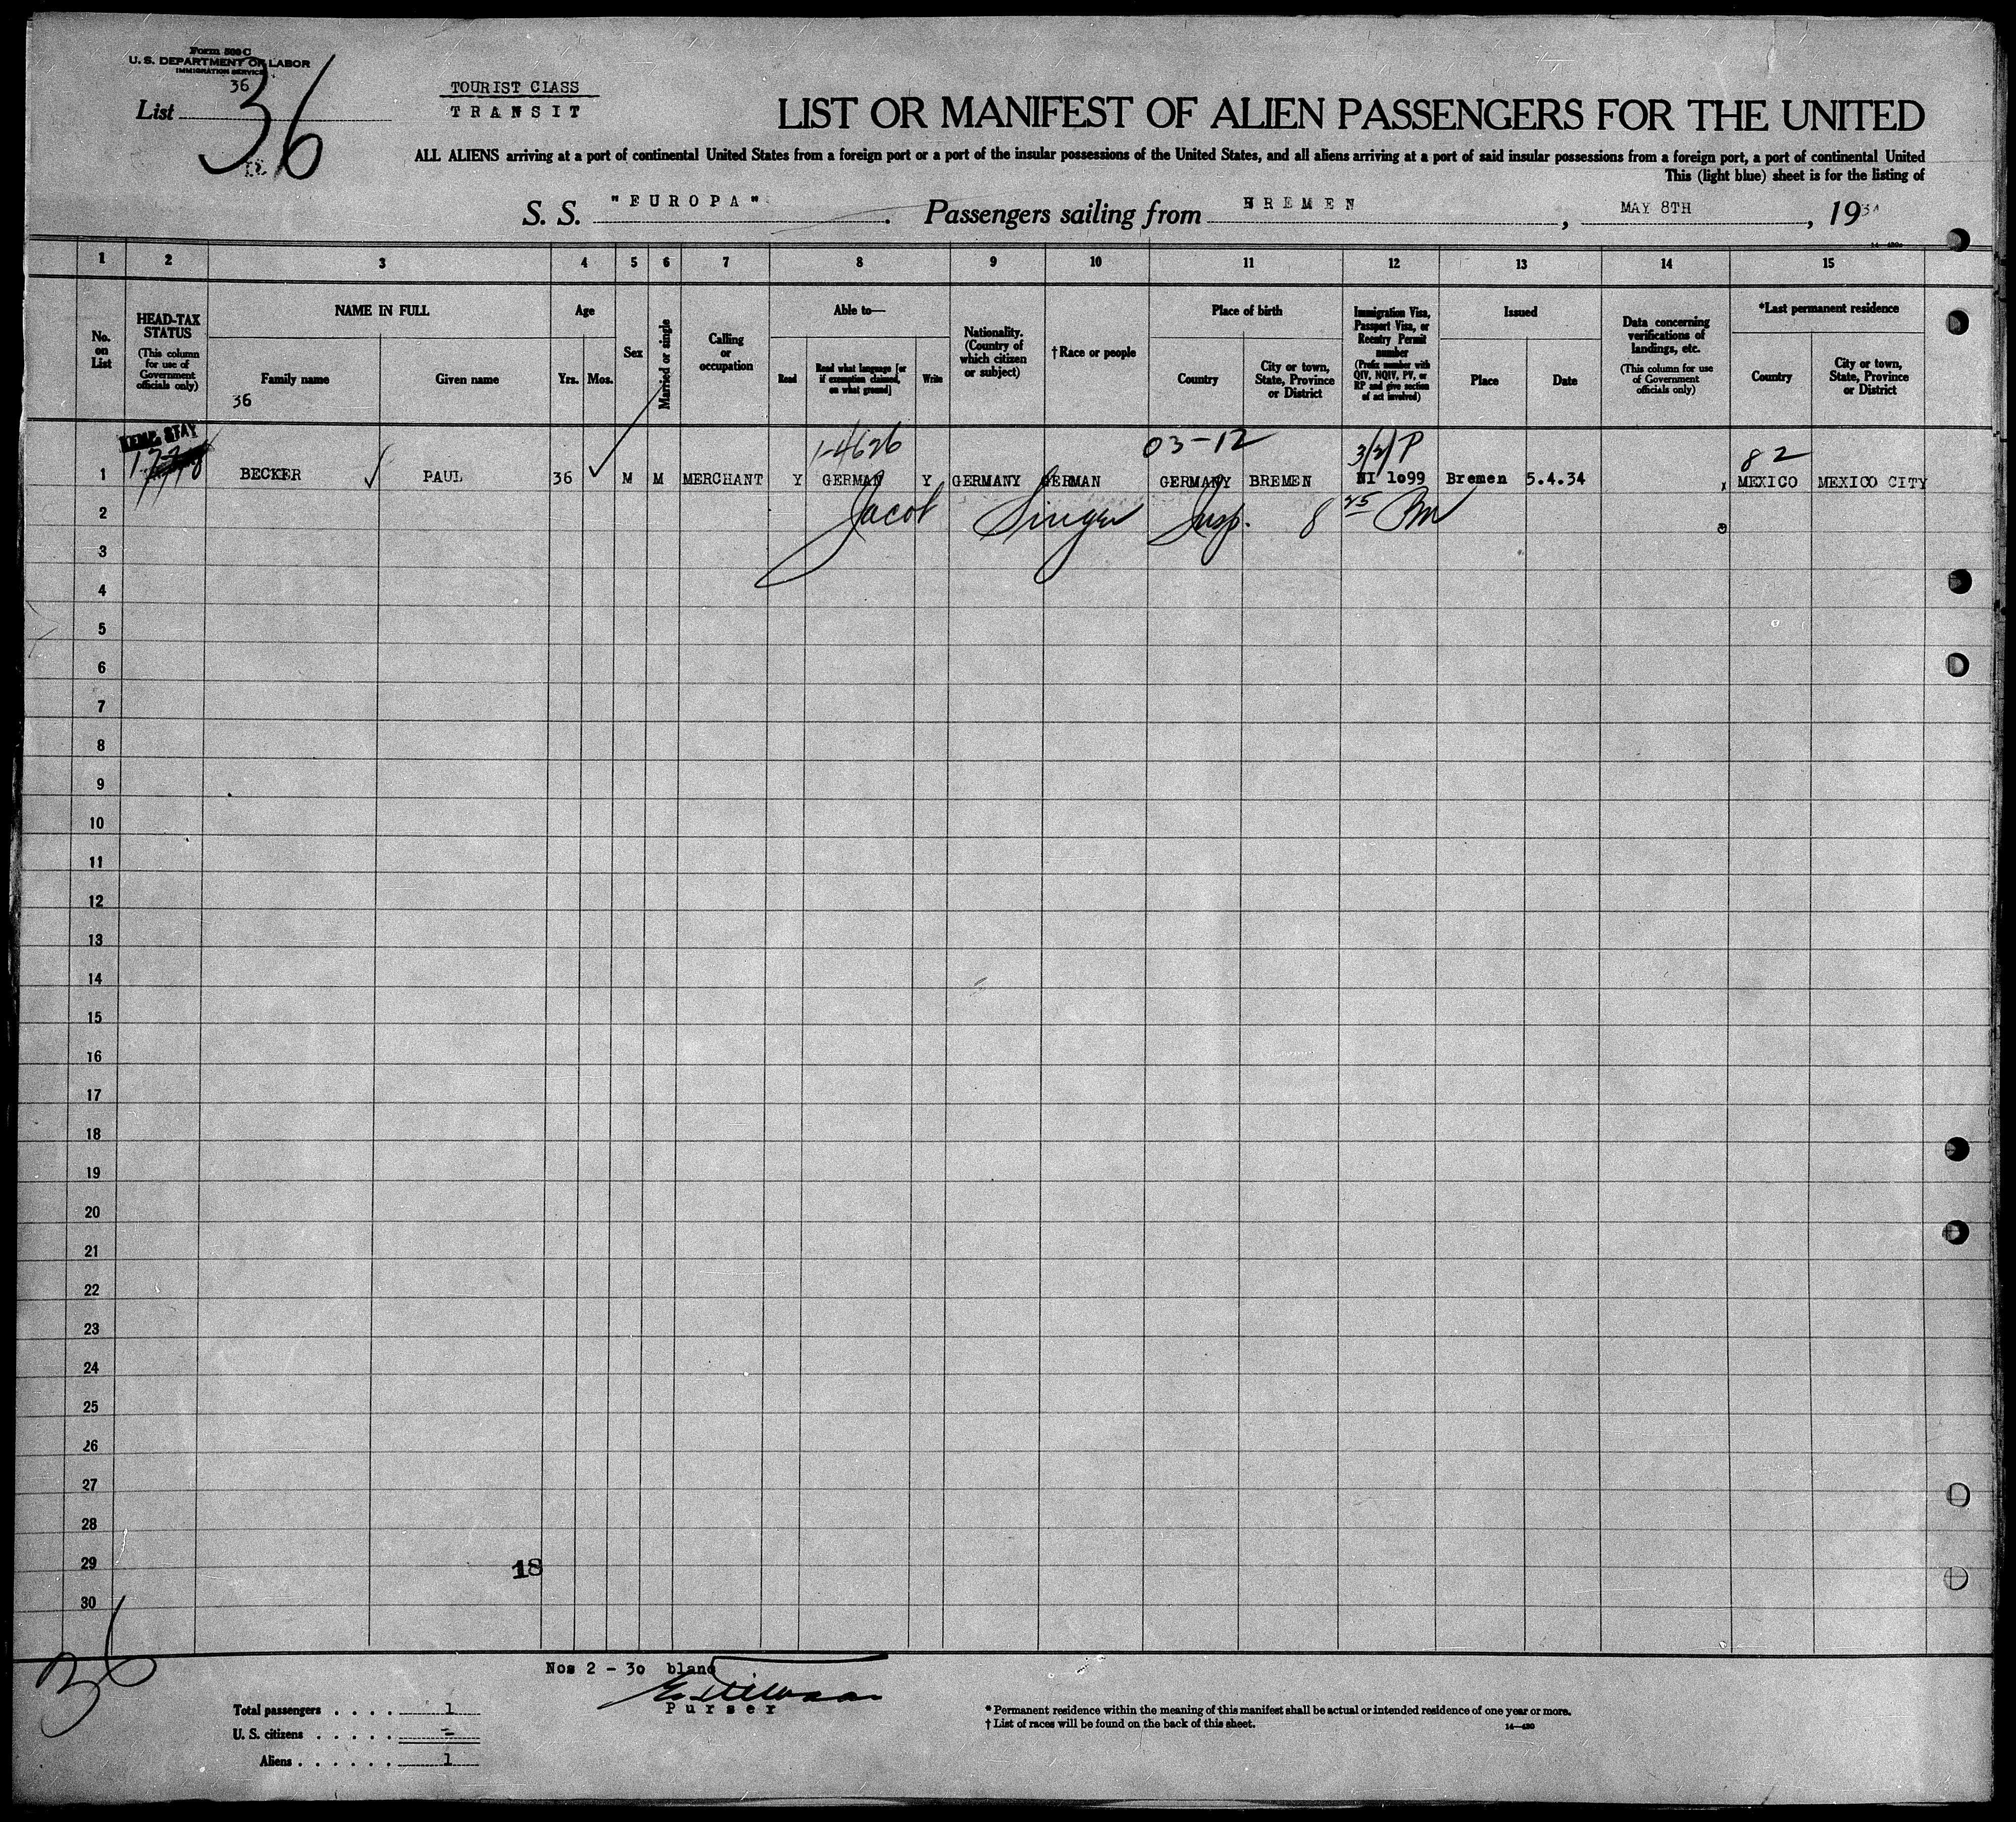 Form 500 C
U. S. DEPARTMENT OF LABOR
IMMIGRATION SERVICE
36
List
36
TOURIST CLASS
TRANSIT
LIST OR MANIFEST OF ALIEN PASSENGERS FOR THE UNITED
ALL ALIENS arriving at a port of continental United States from a foreign port or a port of the insular possessions of the United States, and all aliens arriving at a port of said insular possessions from a foreign port, a port of continental United
This (light blue) sheet is for the listing of
S. S. "EUROPA". Passengers sailing from BREMEN, MAY 8TH, 1934
1 2 3 4 5 6 7 8 9 10 11 12 13 14 15
No. on List
HEAD-TAX STATUS
(This column for use of Government officials only)
NAME IN FULL
Family name
36
Given name
Age
Yrs. Mos.
Sex
Married or single
Calling or occupation
Able to—
Read
Read what language [or if exemption claimed, on what ground]
Write
Nationality. (Country of which citizen or subject)
†Race or people
Place of birth
Country
City or town, State, Province or District
Immigration Visa, Passport Visa, or Reentry Permit number
(Prefix number with QIV, NQIV, PV, or RP and give section of act involved)
Issued
Place
Date
Data concerning verifications of landings, etc.
(This column for use of Government officials only)
*Last permanent residence
Country
City or town, State, Province or District
TEMP. STAY
1-4626 03-12 3/2/P 82
1 BECKER PAUL 36 M M MERCHANT Y GERMAN Y GERMANY GERMAN GERMANY BREMEN NI 1099 Bremen 5.4.34 MEXICO MEXICO CITY
2 Jacob Singer Insp. 8 45 Pm
3
4
5
6
7
8
9
10
11
12
13
14
15
16
17
18
19
20
21
22
23
24
25
26
27
28
29 18
30
36
Nos 2 - 30 blanc
Purser
Total passengers . . . . 1
U. S. citizens . . . . . -
Aliens . . . . . . 1
* Permanent residence within the meaning of this manifest shall be actual or intended residence of one year or more.
† List of races will be found on the back of this sheet.
14—430